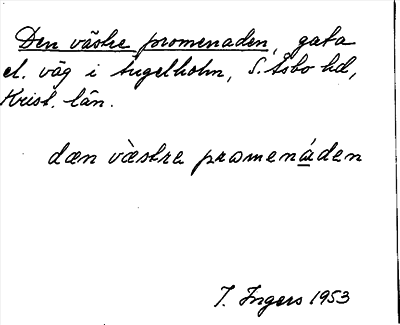 Den västre promenaden, gata
el. väg i Ängelholm, S. Åsbo hd,
Krist. län.
dæn væ̀stra prωmená̱den
I. Ingers 1953